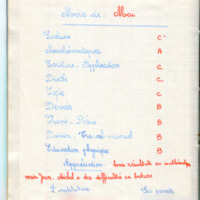 Mois de : Mai
Lecture C
Mathématiques A
Ecriture - Application C
Dictée C
Copie C
Devoir B
Chant - Poésie B
Dessin - Travail manuel B
Education physique B
Appréciation : bons résultats en mathéma
mais Michel a des difficultés en lecture
L'institutrice Les parents